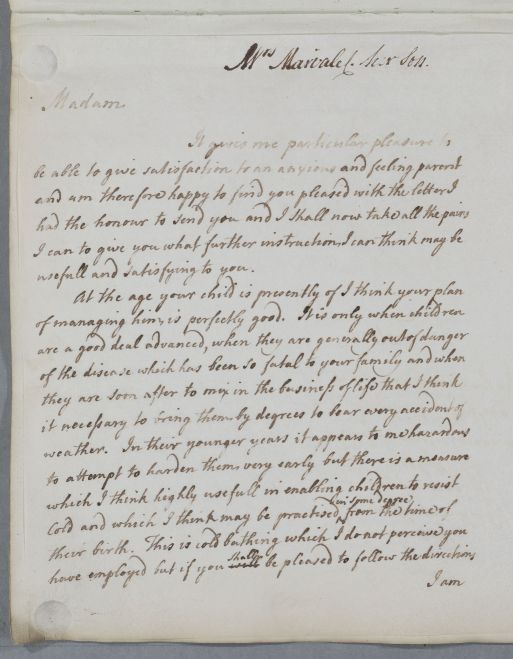 Mrs Marvale
Madam
It gives me particular pleasure to
be able to give satisfaction to an anxious and feeling parent
and am therefore happy to find you pleased with the letter I
had the honour to send you and I shall now take all the pains
I can to give you what further instruction I can think may be
usefull and satisfying to you.
At the age your child is presently of I think your plan
of managing him, is perfectly good. It is only when children
are a good deal advanced, when they are generally out of danger
of the disease which has been so fatal to your family and when
they are soon after to mix in the business of life that I think
it necessary to bring them by degrees to bear every accident of
weather. In their younger years it appears to me hazardous
to attempt to harden them very early but there is a measure
which I think highly usefull in enabling children to resist
Cold and which I think may be practised in some degree from the time of
their birth. This is cold bathing which I do not perceive you
have employed but if you shall be pleased to follow the directions
I am